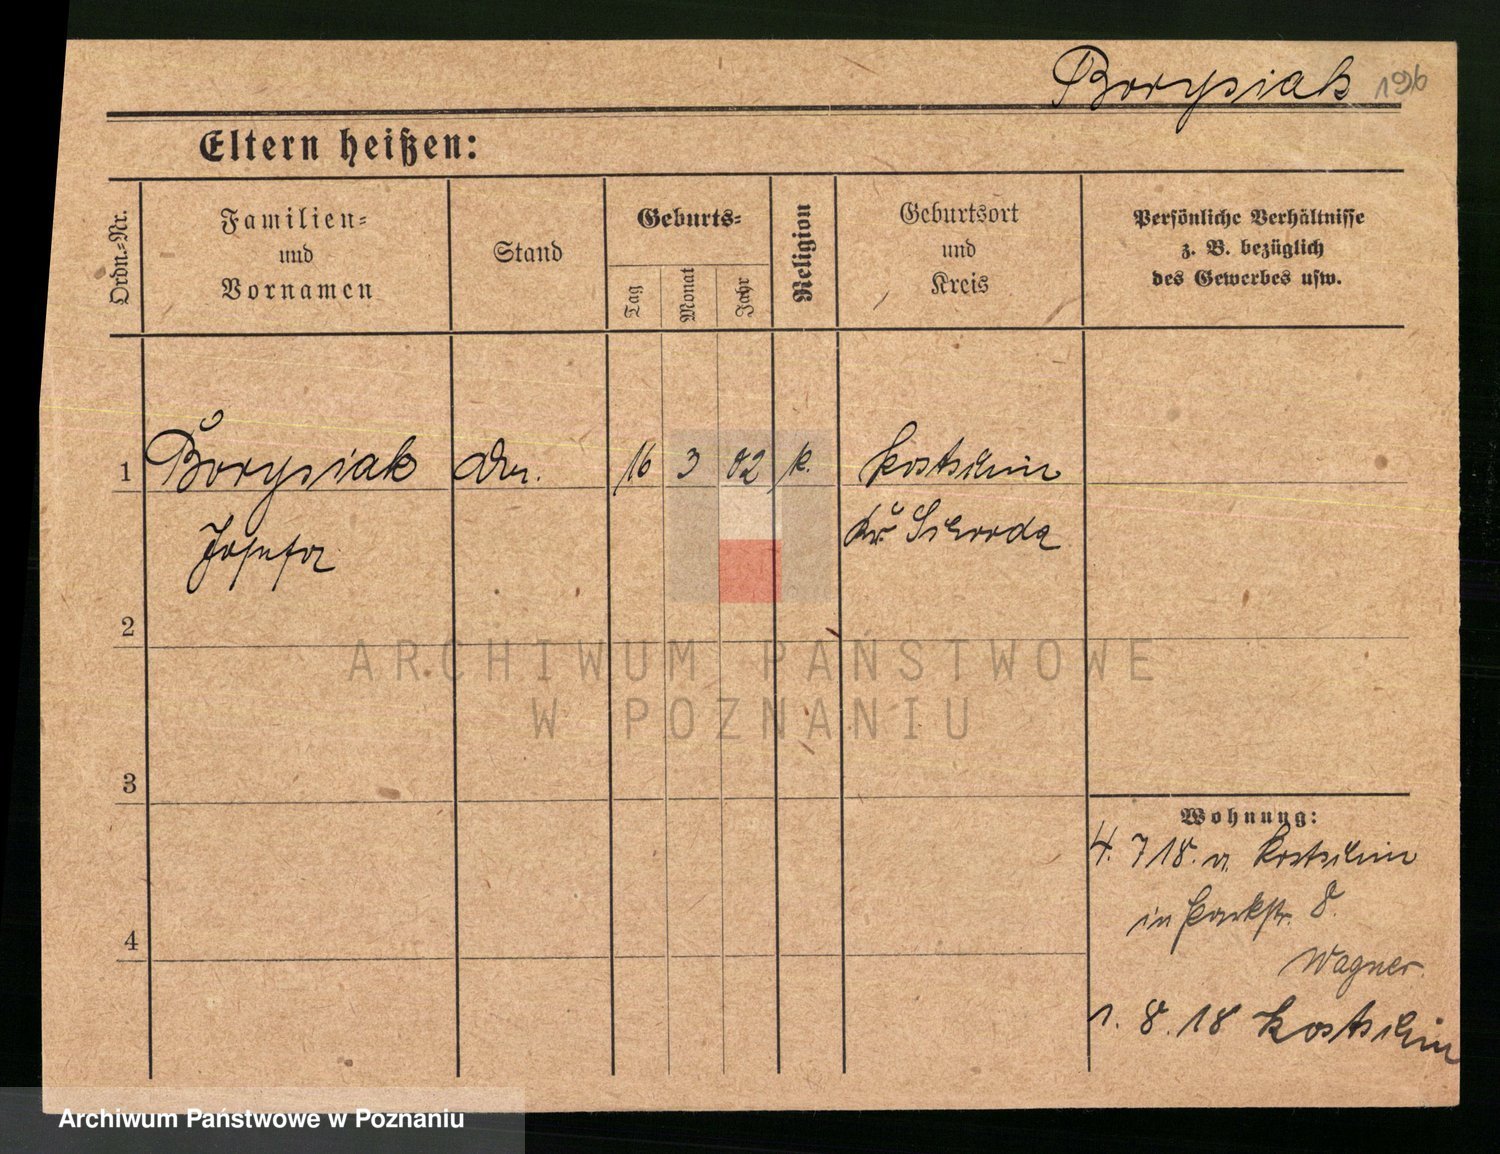 Borysiak 196
Eltern heißen:
Ordn.-Nr.
Familien-
und
Vornamen
Stand
Geburts-
Tag
Monat
Jahr
Religion
Geburtsort
und
Kreis
Persönliche Verhältnisse
z. B. bezüglich
des Gewerbes usw.
1 Borysiak 16 3 02 k. Kostschin
Josefa Kr. Schroda
2
3
4
Wohnung:
4. 7 18. a. Kostschin
in Parkstr. 8.
Wagner.
1. 8. 18 Kostschin
ARCHIWUM PAŃSTWOWE
W POZNANIU
Archiwum Państwowe w Poznaniu